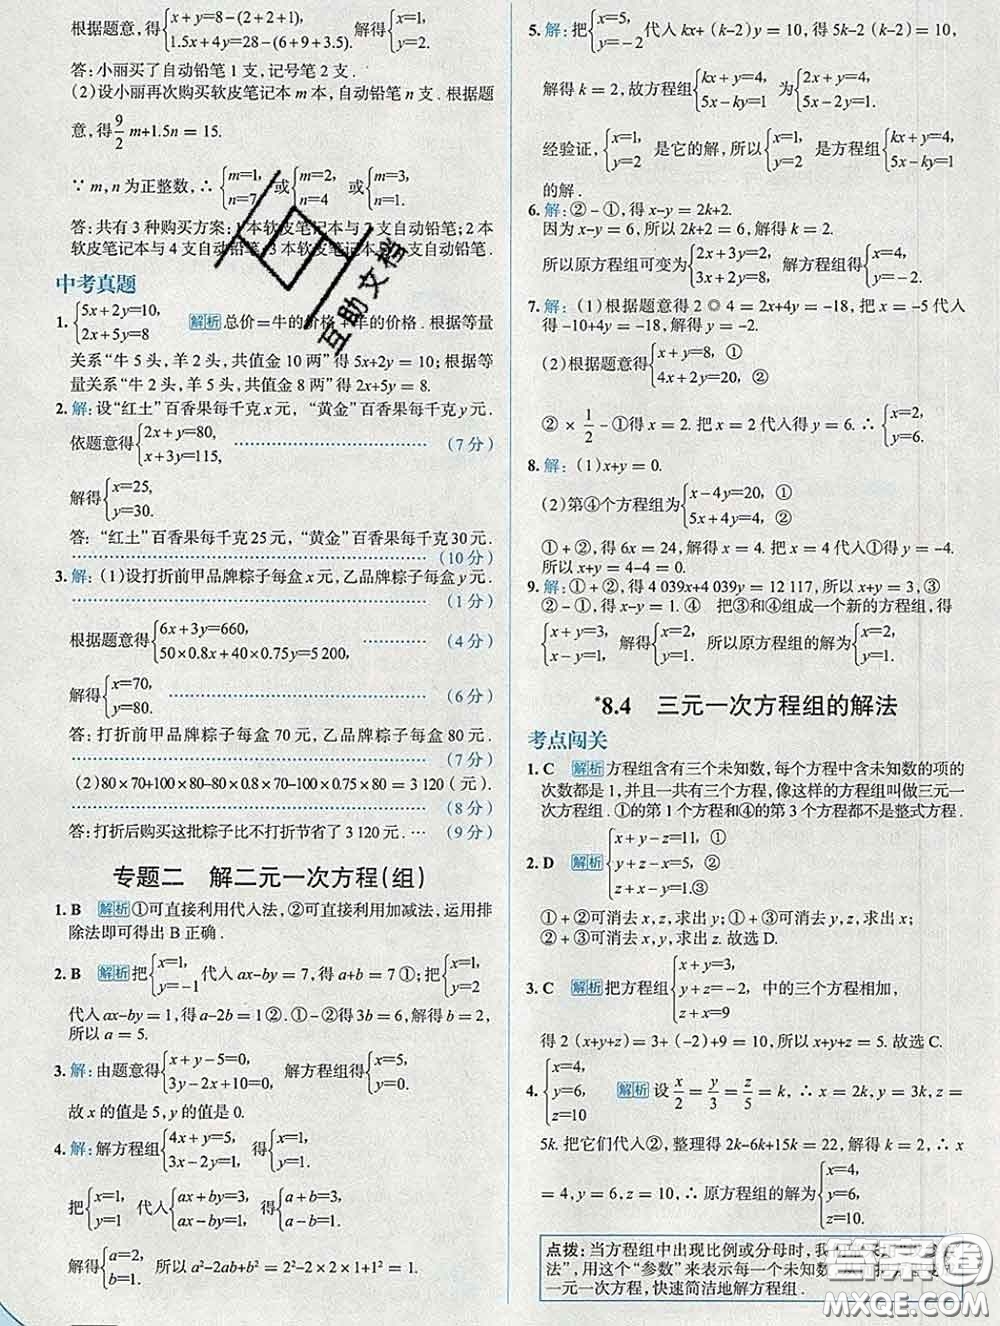 根据题意，得{x+y=8-(2+2+1)，
1.5x+4y=28-(6+9+3.5)。 解得{x=1，
y=2。
答：小丽买了自动铅笔 1 支，记号笔 2 支．
(2)设小丽再次购买软皮笔记本 m 本，自动铅笔 n 支．根据题
意，得9/2 m+1.5n = 15.
∵ m，n 为正整数，∴ {m=1，
n=7 或{m=2，
n=4 或{m=3，
n=1.
答：共有 3 种购买方案：1 本软皮笔记本与 7 支自动铅笔；2 本
软皮笔记本与 4 支自动铅笔；3 本软皮笔记本与 1 支自动铅笔．
中考真题
1. {5x+2y=10，
2x+5y=8 解析 总价=牛的价格+羊的价格．根据等量
关系“牛 5 头，羊 2 头，共值金 10 两”得 5x+2y = 10；根据等
量关系“牛 2 头，羊 5 头，共值金 8 两”得 2x+5y = 8.
2. 解：设“红土”百香果每千克 x 元，“黄金”百香果每千克 y 元．
依题意得{2x+y=80，
x+3y=115， (7 分)
解得{x=25，
y=30.
答：“红土”百香果每千克 25 元，“黄金”百香果每千克 30 元．
(10 分)
3. 解：(1)设打折前甲品牌粽子每盒 x 元，乙品牌粽子每盒 y 元．
(1 分)
根据题意得{6x+3y=660，
50×0.8x+40×0.75y=5 200， (4 分)
解得{x=70，
y=80. (6 分)
答：打折前甲品牌粽子每盒 70 元，乙品牌粽子每盒 80 元．
(7 分)
(2)80×70+100×80-80×0.8×70-100×0.75×80 = 3 120（元）．
(8 分)
答：打折后购买这批粽子比不打折节省了 3 120 元．… (9 分)
专题二 解二元一次方程（组）
1. B 解析 ①可直接利用代入法，②可直接利用加减法，运用排
除法即可得出 B 正确．
2. B 解析 把{x=1，
y=-1 代入 ax-by = 7，得 a+b = 7 ①；把{x=1，
y=2
代入 ax-by = 1，得 a-2b = 1②．①-②得 3b = 6，解得 b = 2，
所以 a = 5.
3. 解：由题意得{x+y-5=0，
3y-2x+10=0， 解方程组得{x=5，
y=0.
故 x 的值是 5，y 的值是 0.
4. 解：解方程组{4x+y=5，
3x-2y=1， 得{x=1，
y=1.
把{x=1，
y=1 代入{ax+by=3，
ax-by=1， 得{a+b=3，
a-b=1.
解得{a=2，
b=1. 所以 a²-2ab+b² = 2²-2×2×1+1² = 1.
5. 解：把{x=5，
y=-2 代入 kx+(k-2)y = 10，得 5k-2(k-2)= 10，
解得 k = 2，故方程组{kx+y=4，
5x-ky=1 为{2x+y=4，
5x-2y=1.
经验证，{x=1，
y=2 是它的解，所以{x=1，
y=2 是方程组{kx+y=4，
5x-ky=1
的解．
6. 解：②-①，得 x-y = 2k+2.
因为 x-y = 6，所以 2k+2 = 6，解得 k = 2.
所以原方程组可变为{2x+3y=2，
3x+2y=8， 解方程组得{x=4，
y=-2.
7. 解：(1)根据题意得 2 ◎ 4 = 2x+4y = -18，把 x = -5 代入
得 -10+4y = -18，解得 y = -2.
(2)根据题意得{x+y=8，①
4x+2y=20，②
②×1/2-①得 x = 2，把 x = 2 代入①得 y = 6. ∴ {x=2，
y=6.
8. 解：(1)x+y = 0.
(2)第④个方程组为{x-4y=20，①
5x+4y=4，②
①+②，得 6x = 24，解得 x = 4. 把 x = 4 代入①得 y = -4.
所以 x+y = 4-4 = 0.
9. 解：①+②，得 4 039x+4 039y = 12 117，所以 x+y = 3，③
②-①，得 x-y = 1. ④ 把③和④组成一个新的方程组，得
{x+y=3，
x-y=1， 解得{x=2，
y=1， 所以原方程组的解为{x=2，
y=1.
*8.4 三元一次方程组的解法
考点闯关
1. C 解析 方程组含有三个未知数，每个方程中含未知数的项的
次数都是 1，并且一共有三个方程，像这样的方程组叫做三元
一次方程组．①的第 1 个方程和④的第 3 个方程都不是整式方程．
2. D 解析 {x+y-z=11，①
y+z-x=5，②
z+x-y=1.③
①+②可消去 x，z，求出 y；①+③可消去 y，z，求出 x；
②+③可消去 x，y，求出 z. 故选 D.
3. C 解析 把方程组{x+y=3，
y+z=-2，
z+x=9 中的三个方程相加，
得 2（x+y+z）= 3+（-2）+9 = 10，所以 x+y+z = 5. 故选 C.
4. {x=4，
y=6，
z=10 解析 设 x/2 = y/3 = z/5 = k，∴ x = 2k，y = 3k，z =
5k. 把它们代入②，整理得 2k-6k+15k = 22，解得 k = 2，∴ x
= 4，y = 6，z = 10，∴ 原方程组的解为{x=4，
y=6，
z=10.
点拨：当方程组中出现比例或分母时，我
法”，用这个“参数”来表示每一个未知数
一元一次方程，快速简洁地解方程组．
百一
互助文档
答案圈
MXQE.COM